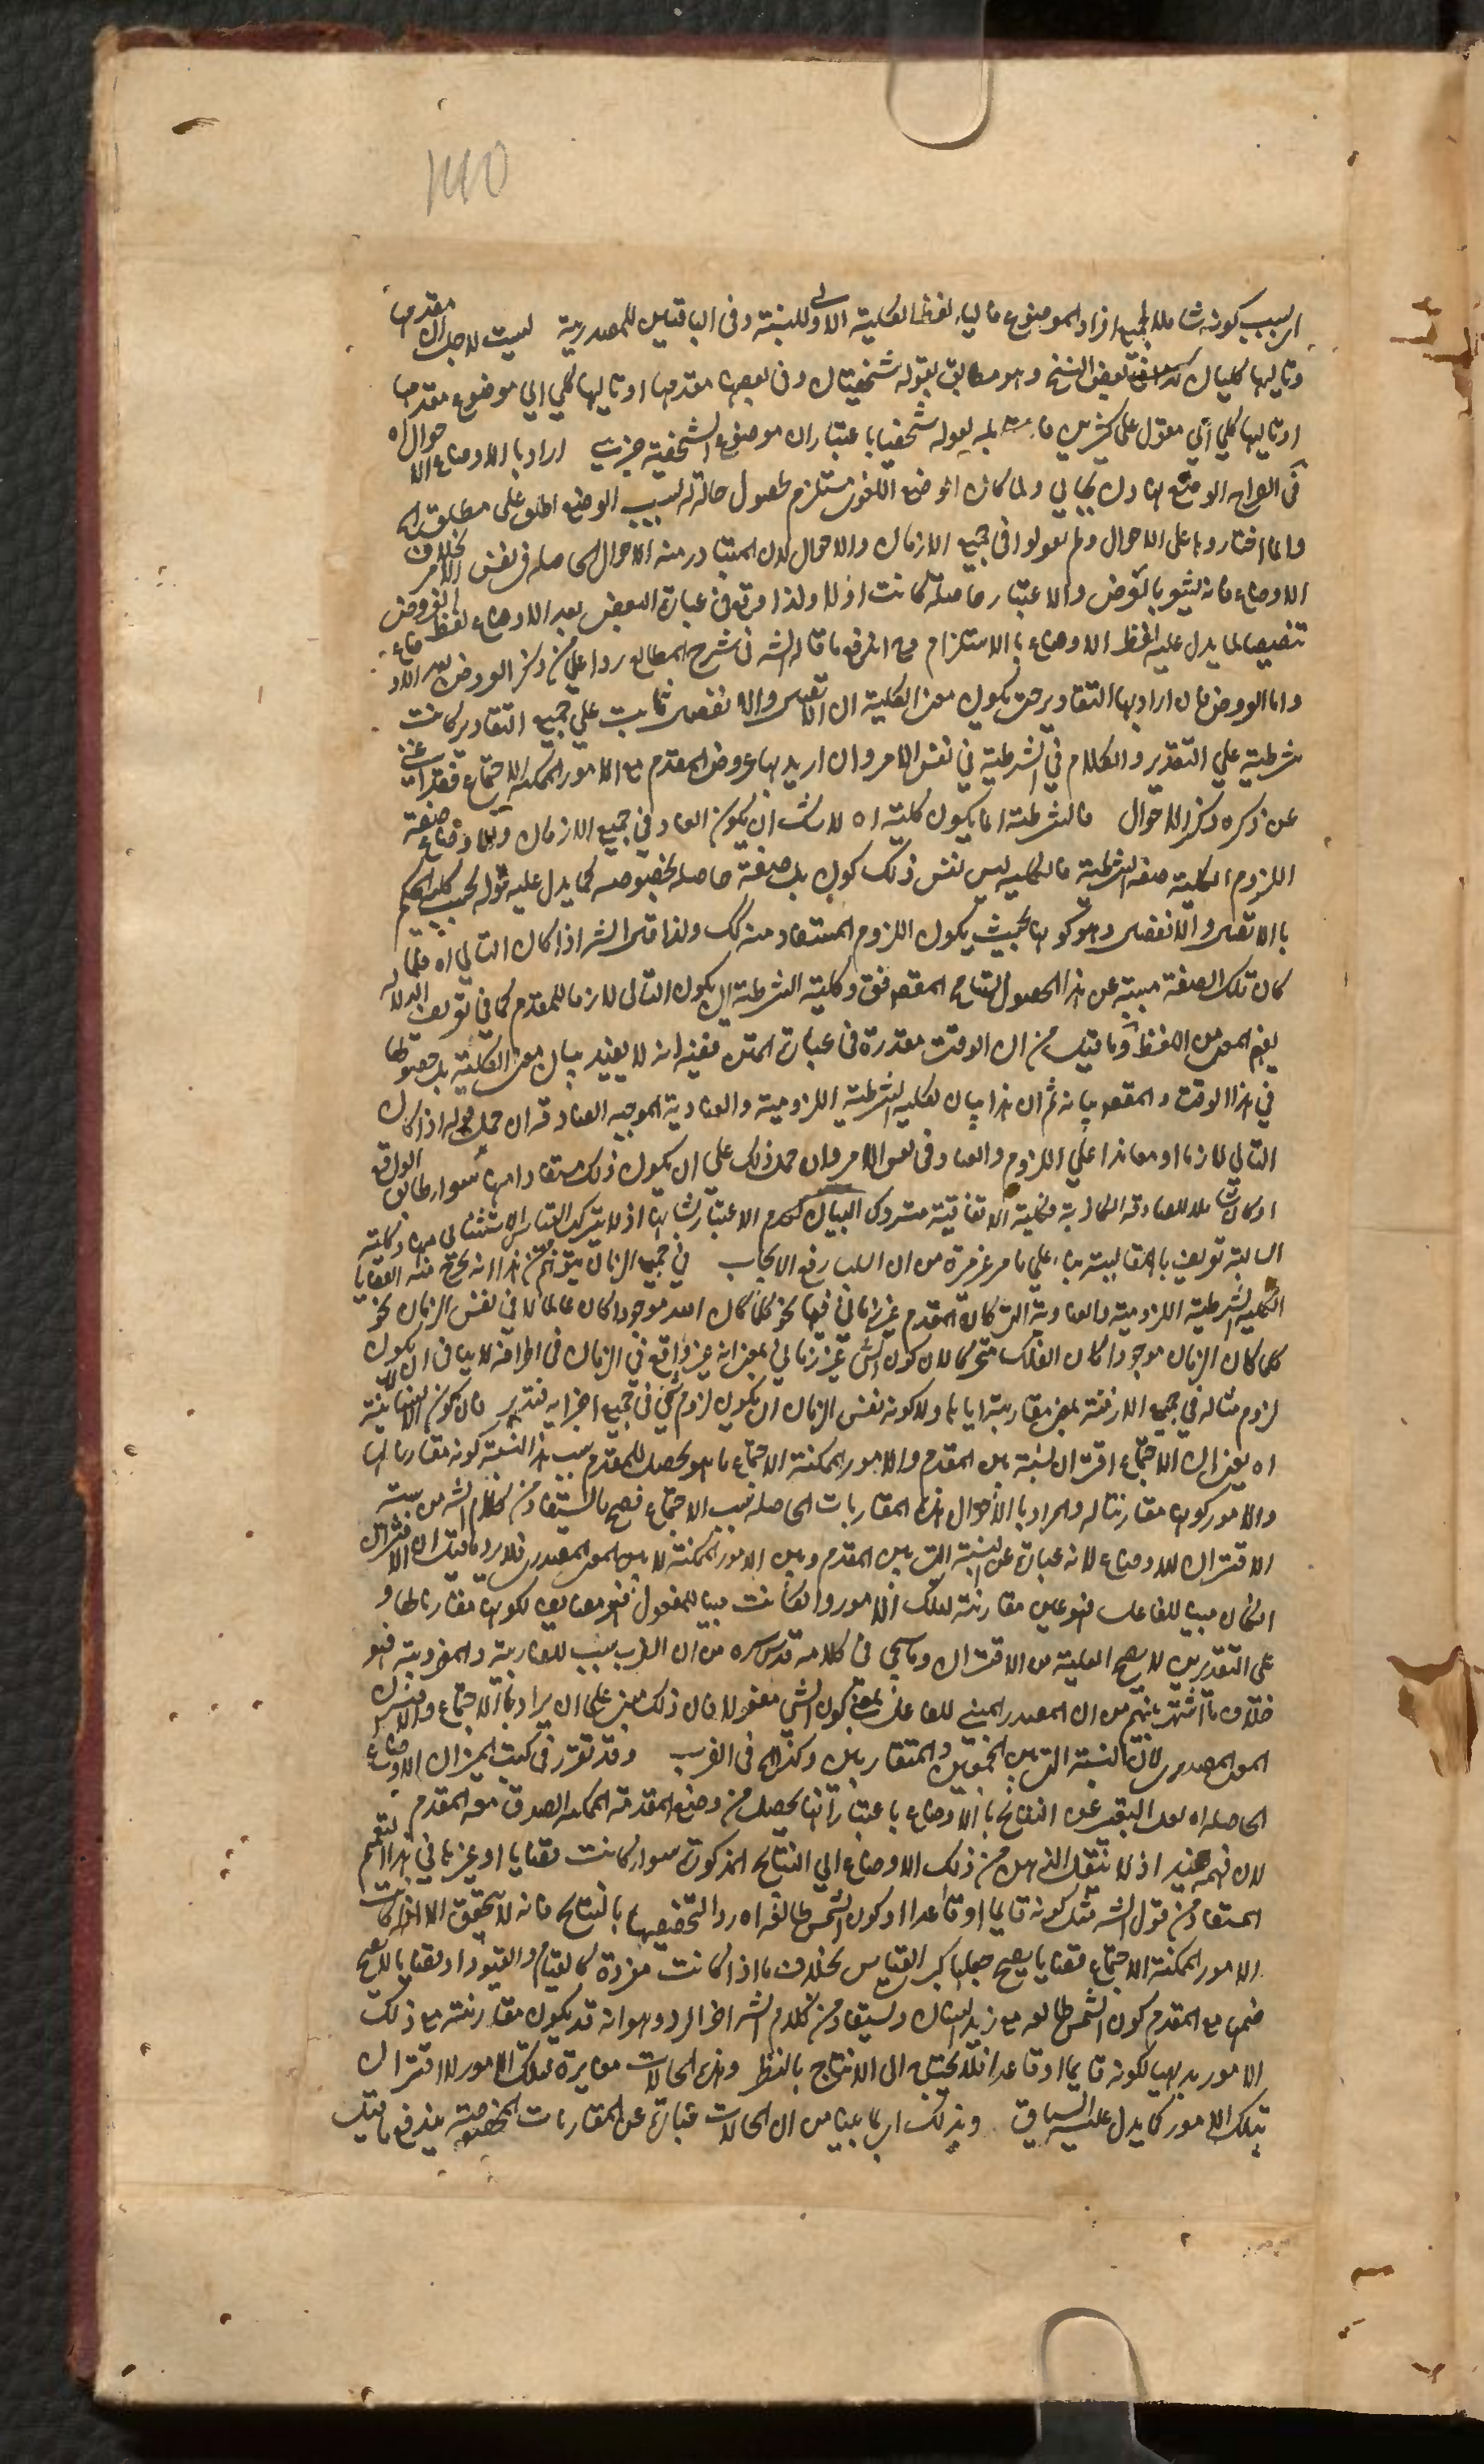 اى بسبب كونه شاملا لجميع افراد الموضوع فالياء لفظ الكلية الاولى للنسبة وفى الباقيتين للمصدرية ليست لاجل ان مقدمها
وتاليها كليان كذا فى بعض النسخ وهو مطابق بقوله شخصيتان وفى بعضها مقدمها او تاليها كلي اي موضوع مقدمها
او تاليها كلي اي مقول على كثيرين فا بله بقوله شخصيا باعتبار ان موضوع الشخصية جزئي اراد بالاوضاع الاحوال اه
فى الصراح الوضع نهادن بجاي ولما كان الوضع اللغوى مستلزم لحصول حالة له بسبب الوضع اطلق على مطلق
وانما اختاروها على الاحوال ولم يقولوا فى جميع الازمان والاحوال لان المتبادر منه الاحوال الحاصله فى نفس الامر بخلاف
الاوضاع فانه يشعر بالفرض والاعتبار حاصلة كانت اولا ولذا وقع فى عبارة البعض بعد الاوضاع لفظ الفروض
تنصيصا لما يدل عليه لفظ الاوضاع بالاستلزام فح اندفع ما قاله الشه فى شرح المطالع ردا على من ذكر الفروض بعد الاوضاع
واما الفروض فان اراد بها التقادير حتى يكون معنى الكلية ان الاتصال والانفصال ثابت على جميع التقادير كانت
شرطية علي التقدير والكلام في الشرطية في نفس الامر وان اريد بها فروض المقدم مع الامور الممكنة الاجتماع فقد اغنى
عن ذكره ذكر الاحوال فالشرطية انما يكون كلية اه لا شك ان يكون العناد فى جميع الازمان والاوضاع صفة
اللزوم الكلية صفة الشرطية فالكلية ليس نفس ذلك كون بل صفة حاصلة بخصوصه كما يدل عليه قوله بحسب كلية الحكم
بالاتصال والانفصال وهو كونها بحيث يكون اللزوم المستفاد منه كك ولذا قال الشه اذا كان التالي اه فلما
كان تلك الصفة مبينة عن هذا الحصول تسامح المقصد فق وكلية الشرطية ان يكون التالى لازما للمقدم كما فى تعريف الدلالة
بفهم المعنى من اللفظ وما قيل من ان الوقت مقدرة فى عبارة المتن ففيه انه لا يفيد بيان معنى الكلية بل حصولها
في هذا الوقت والمقصد بيانه ثم ان هذا بيان لكلية الشرطية اللزومية والعنادية الموجبة الصادقة ان حمل قوله اذا كان
التالي لازما او معاندا علي اللزوم والعناد فى نفس الامر وان حمل ذلك علي ان يكون ذلك مستفادا منها سواء طابق الواقع
او كان شاملا للصادقة الكاذبة فكلية الاتفاقية متروك البيان لعدم الاعتبار بشانها اذ لا يتركب القياس الاستثنائى منها وكلية
السالبة تعريف بالمقايسة بناء علي ما مر غير مرة من ان السلب رفع الايجاب في جميع الزمان يتوهم من هذا انه يخرج منه القضايا
الكلية الشرطية اللزومية والعنادية التى كان المقدم غير زمانى فيها نحو كلما كان الله موجودا كان عالما لا فى نفس الزمان نحو
كلما كان الزمان موجودا كان الفلك متحركا لان كون الشئ غير زماني بمعنى انه غير واقع في الزمان فى اطرافه لا ينافى ان يكون
لزوم مثاله في جميع الازمنة بمعنى مقارنته اياها ولا كونه نفس الزمان ان يكون لزوم شئ فى جميع اجزايه فتدبر فان كون
اه يعنى ان الاجتماع اقتران نسبة بين المقدم والامور الممكنة الاجتماع ما هو يحصل للمقدم بسبب هذا النسبة كونه مقارنا لها
والامور كونها مقارنتاله والمراد بالاحوال هذه المقارنات الحاصلة بسبب الاجتماع فصح ما يستفاد من كلام الشه من سببية
الاقتران للاوضاع لانه عبارة عن النسبة التى بين المقدم وبين الامور الممكنة لا بمعنى المعنى المصدرى فلا يرد ما قيل ان الاقتران
ان كان مبنيا للفاعل فهو عين مقارنته لتلك الامور وان كانت مبنيا للمفعول فهو مضايف لكونها مقارنا لها و
على التقديرين لا يصح العلية من الاقتران وما يجى فى كلامه قدس سره من ان الضرب سبب للضاربية والمضروبية فهو
خلاف ما اشتهر بينهم من ان المصدر المبنى للفاعل بمعنى كون الشئ مفعولا فان ذلك مبنى على ان يراد بالاجتماع والاقتران
المعنى المصدرى لان النسبة التى بين المجتمعين والمتقارنين وكذا فى الضرب وقد تقرر فى كتب الميزان الاوضاع
الحاصلة اه لعل التعبير عن النتائج بالاوضاع باعتبار انها يحصل من وضع المقدمة الممكنة الصدق معه المقدم
لان فهمه بعيد اذ لا ينتقل الذهن من ذلك الاوضاع الي النتائج المذكورة سواء كانت قضايا او غيرها في هذا التعميم
المستفاد من قول الشه مثل كونه قايما او قاعدا او كون الشمس طالعة اه رد التخصيصها بالنتايج فانه لا يتحقق الا اذا كانت
الامور الممكنة الاجتماع قضايا يصح جعلها كبرى القياس بخلاف ما اذا كانت مفردة كالقيام والقعود او قضايا لا يصح
ضمها مع المقدم كون الشمس طالعة مع زيد انسان وليستفاد من كلام الشه اخر الردود هو انه قد يكون مقارنته مع ذلك
الامور بديهيا لكونه قايما او قاعدا فلا يحتاج الى الانتاج بالنظر وهذه الحالات مغايرة لتلك الامور للاقتران
بتلك الامور كما يدل عليه السياق وبذلك اى بما بينا من ان الحالات عبارة عن المقارنات المخصوصة يندفع ما قيل